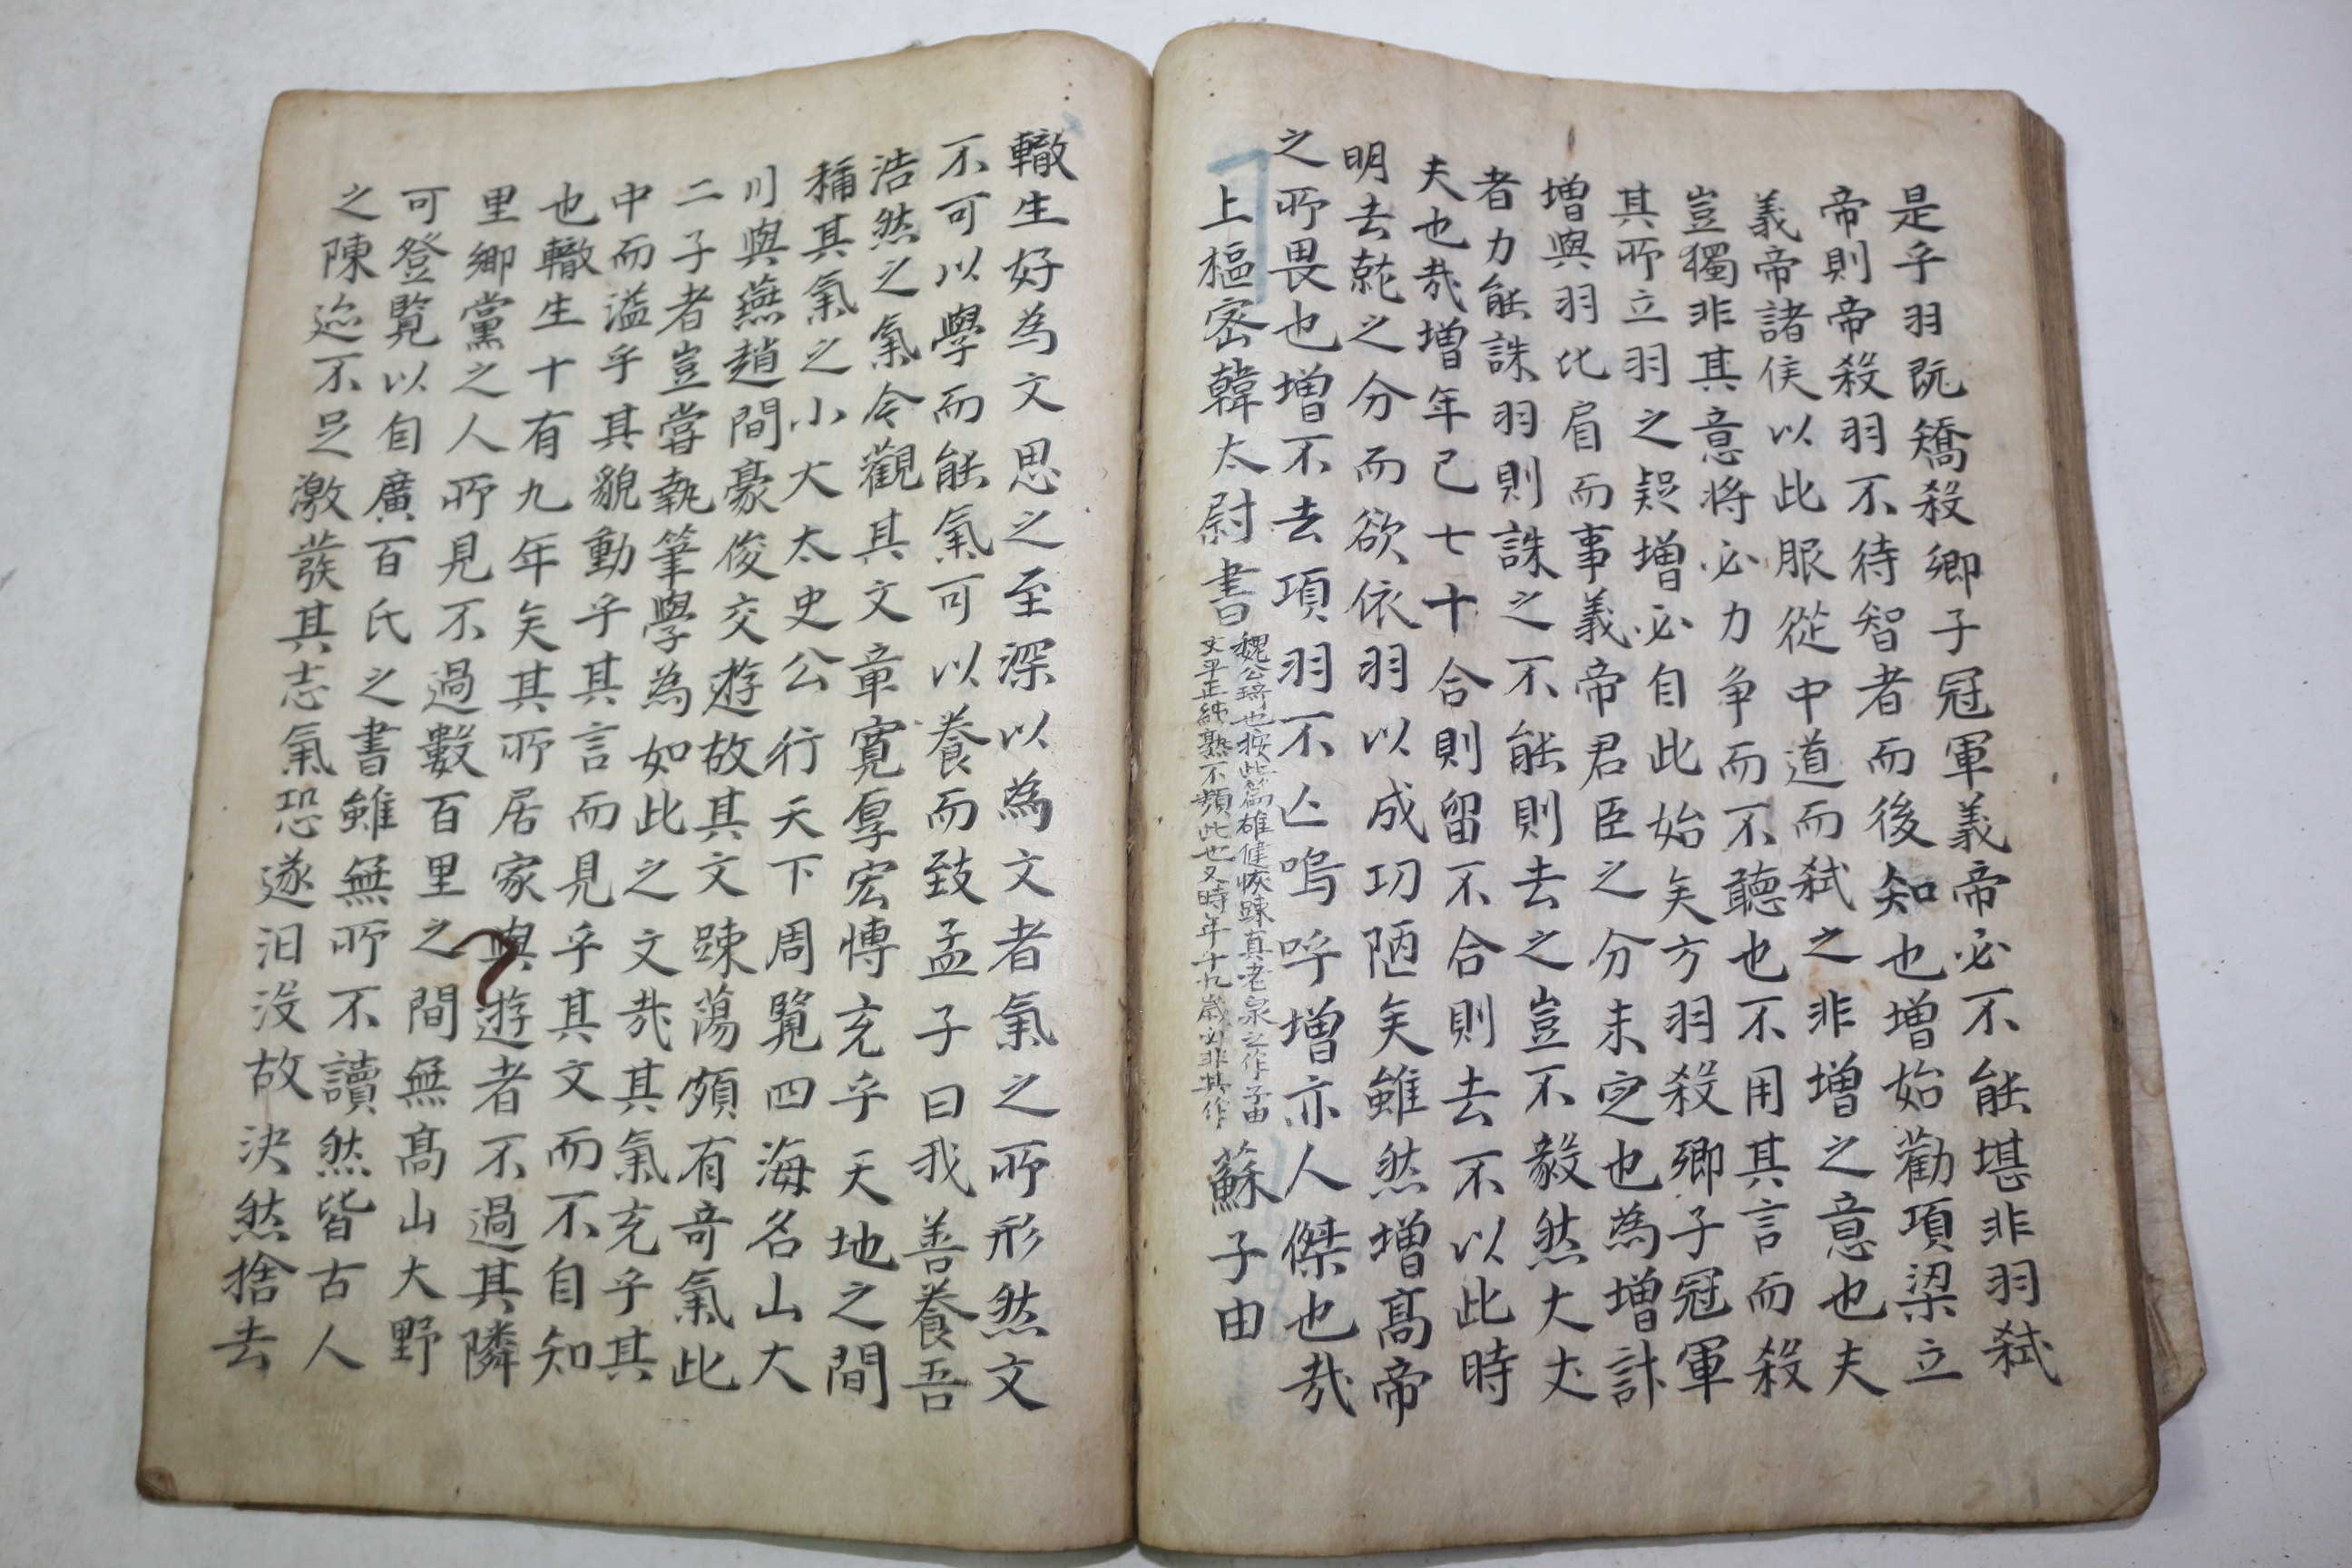 是乎羽旣矯殺卿子冠軍義帝必不能堪非羽弑
帝則帝殺羽不待智者而後知也增始勸項梁立
義帝諸侯以此服從中道而弑之非增之意也夫
豈獨非其意將必力爭而不聽也不用其言而殺
其所立羽之疑增必自此始矣方羽殺卿子冠軍
增與羽比肩而事義帝君臣之分未定也為增計
者力能誅羽則誅之不能則去之豈不毅然大丈
夫也哉增年已七十合則留不合則去不以此時
明去就之分而欲依羽以成功陋矣雖然增高帝
之所畏也增不去項羽不亡嗚呼增亦人傑也哉
上樞密韓太尉書 魏公琦也按此篇雄健恢踈真老泉之作子由
文平正純熟不類此也又時年十九歲必非其作 蘇子由
轍生好為文思之至深以為文者氣之所形然文
不可以學而能氣可以養而致孟子曰我善養吾
浩然之氣今觀其文章寬厚宏博充乎天地之間
稱其氣之小大太史公行天下周覽四海名山大
川與燕趙間豪俊交遊故其文踈蕩頗有奇氣此
二子者豈嘗執筆學為如此之文哉其氣充乎其
中而溢乎其貌動乎其言而見乎其文而不自知
也轍生十有九年矣其所居家與遊者不過其隣
里鄉黨之人所見不過數百里之間無高山大野
可登覽以自廣百氏之書雖無所不讀然皆古人
之陳迹不足激發其志氣恐遂汩沒故決然捨去